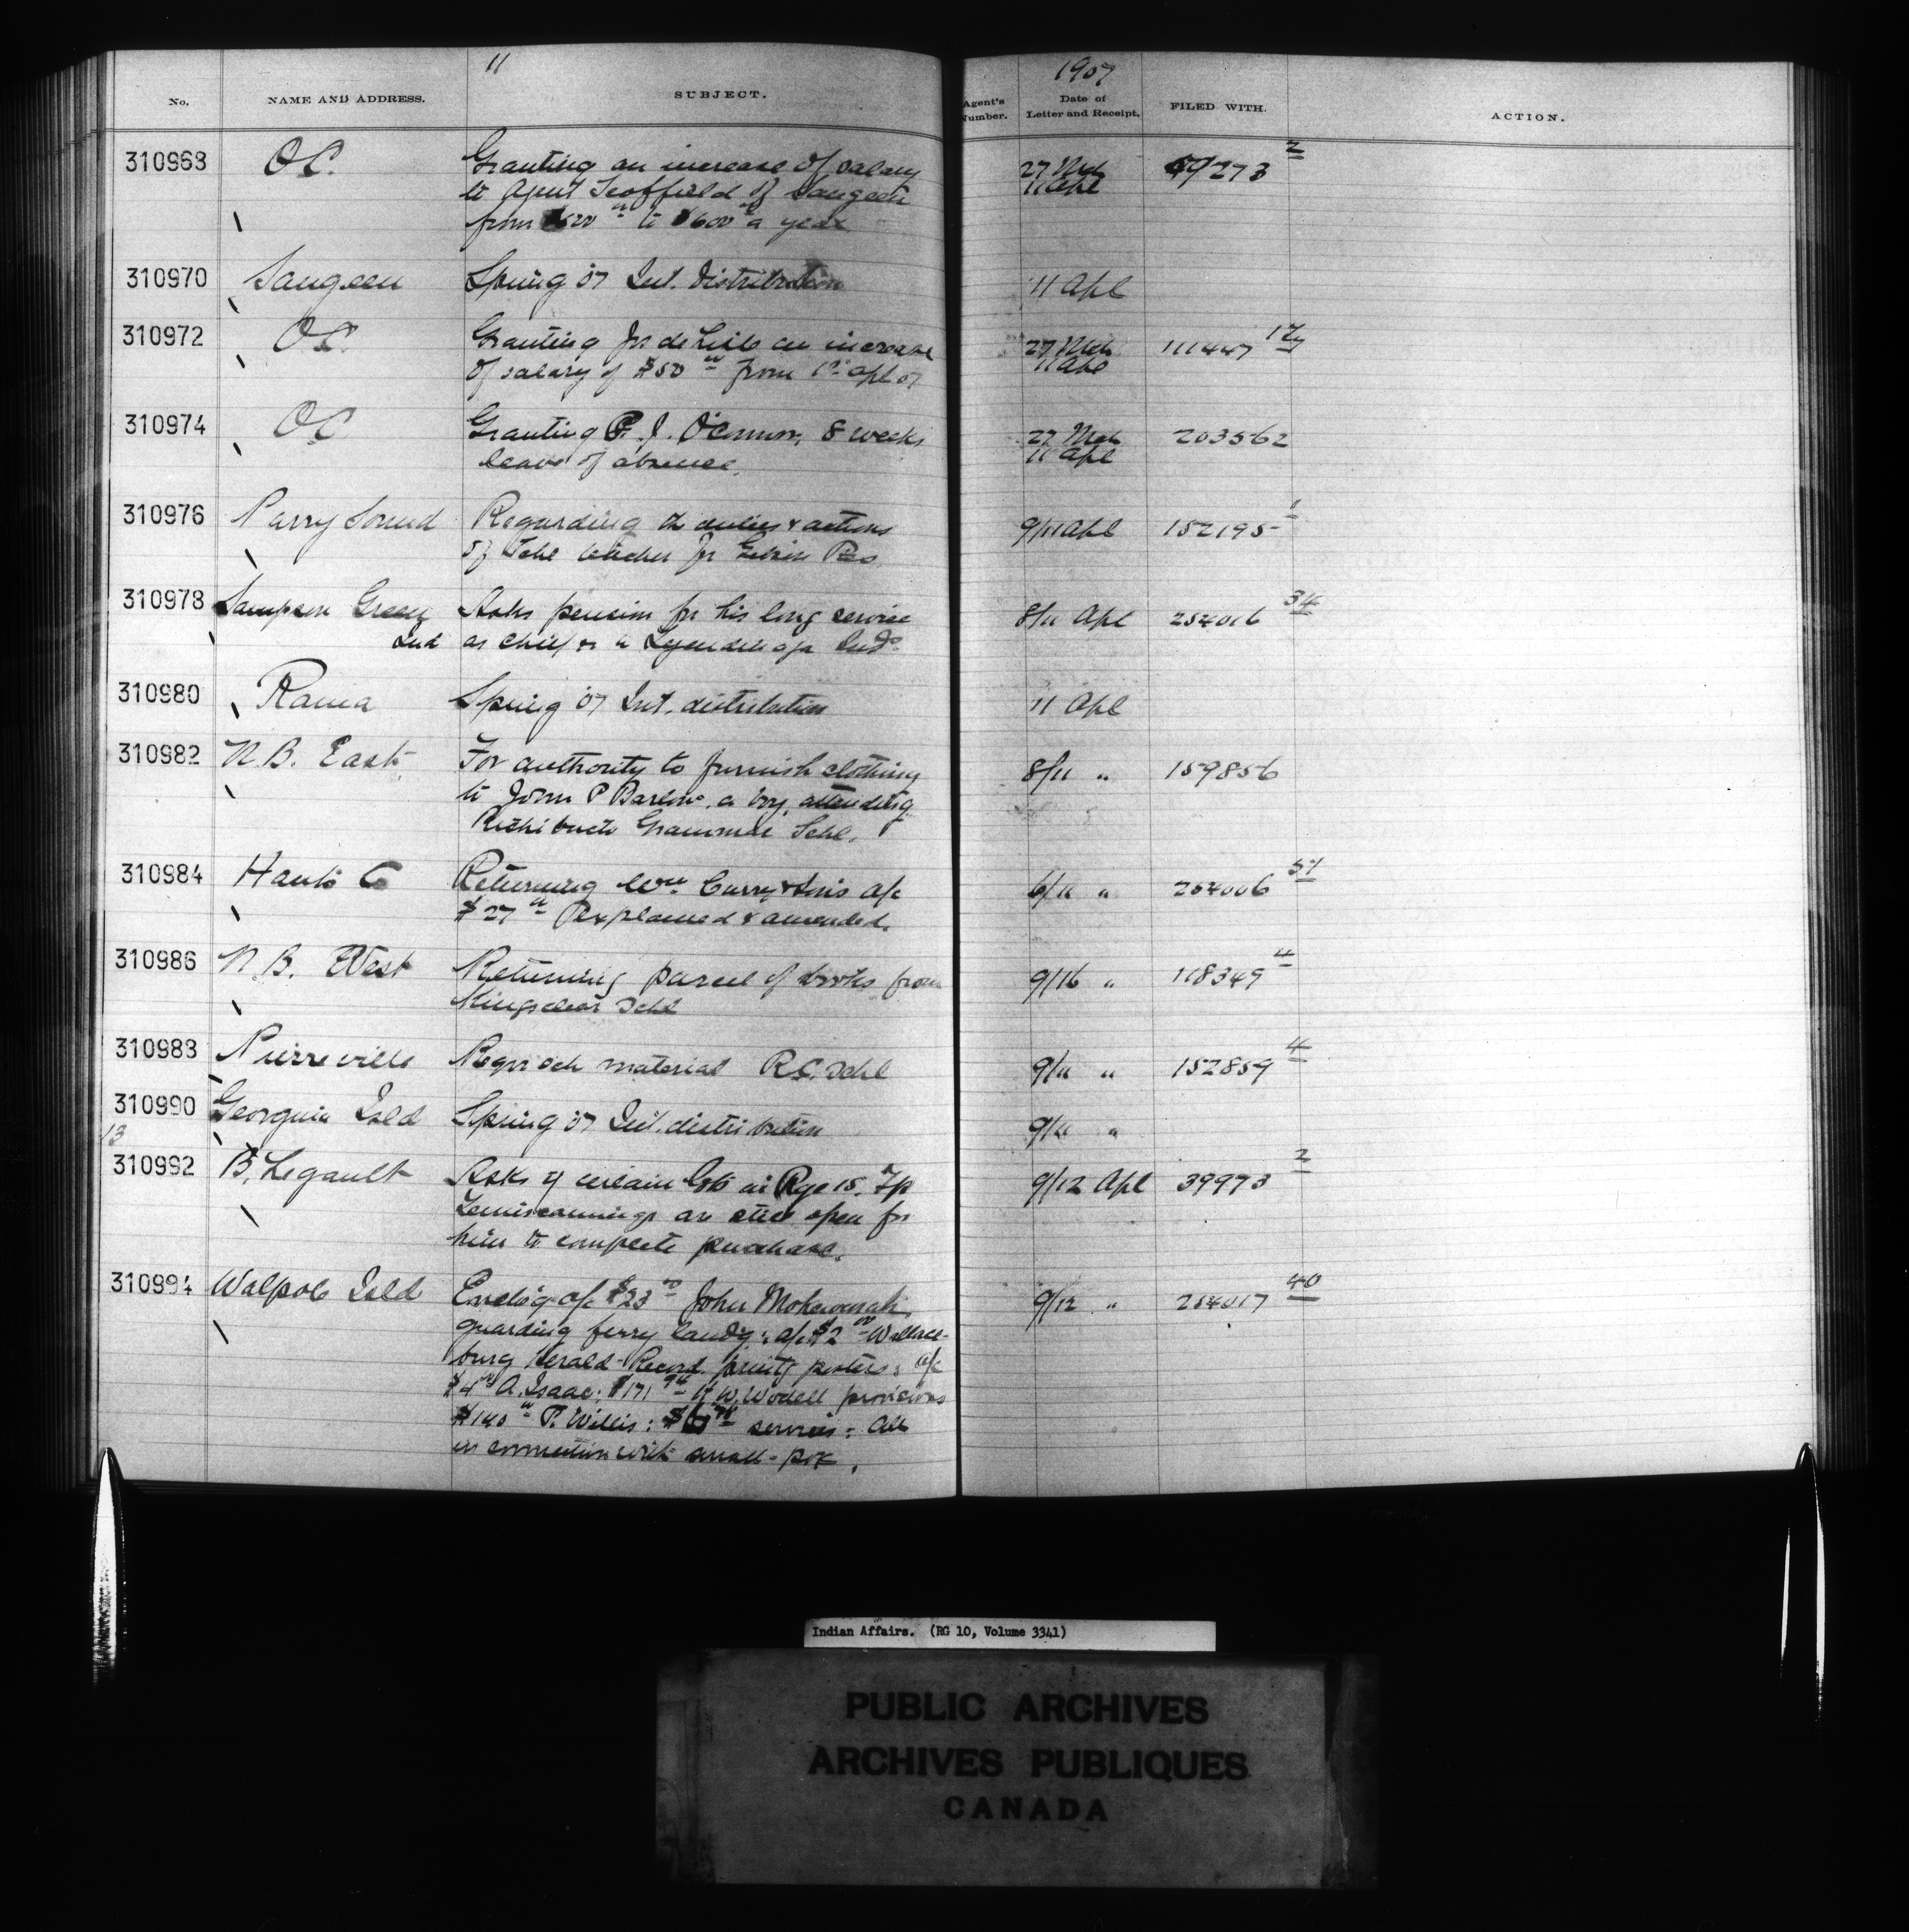 11
1907
No. NAME AND ADDRESS. SUBJECT. Agent's Number. Date of Letter and Receipt. FILED WITH. ACTION.
310968 O.C. Granting an increase of salary 27 Mch 273 2
to Agent Scoffield of Saugeen 11 Apl
from to $600 a year
310970 Saugeen Spring 07 Int. distribution 11 Apl
310972 O.C. Granting an increase 27 Mch 111447
of salary of $50 00 from 1st Apl 07 11 Apl
310974 O.C. Granting P. J. O'Connor, 8 weeks 27 Mch 203562
leave of absence. 11 Apl
310976 Parry Sound Regarding the duties & actions 9/11 Apl 152195 1
of Schl teacher for
310978 Sampson Green Asks pension for his long service 8/11 Apl 254016 34
Ind as chief
310980 Rama Spring 07 Int. distribution 11 Apl
310982 N.B. East For authority to furnish clothing 8/11 " 159856
to John P Barlow, a boy, attending
Richibucto Grammar Schl.
310984 Hants Co Returning Wm Curry & Sons a/c 6/11 " 254006 51
$27 explained & amended.
310986 N.B. West Returning parcel of books from 9/16 " 118349 4
Kingsclear Schl
310988 Pierreville Reqn sch material R.C. Schl 9/11 " 152859 4
310990 Georgina Isld Spring 07 Int. distribution 9/11 "
13
310992 B. Legault Asks if certain lots in Rge 15. Tp 9/12 Apl 39973 2
Temiscamingue are still open for
him to complete purchase.
310994 Walpole Isld Enclo'g a/c $23 John 9/12 " 254017 40
guarding ferry land'g; a/c $2 00 Wallace-
burg Herald-Record print'g posters; a/c
$4 A. Isaac; $171 H. W. provisions
$140 P. Willis: services; All
in connection with small-pox.
Indian Affairs. (RG 10, Volume 3341)
PUBLIC ARCHIVES
ARCHIVES PUBLIQUES
CANADA